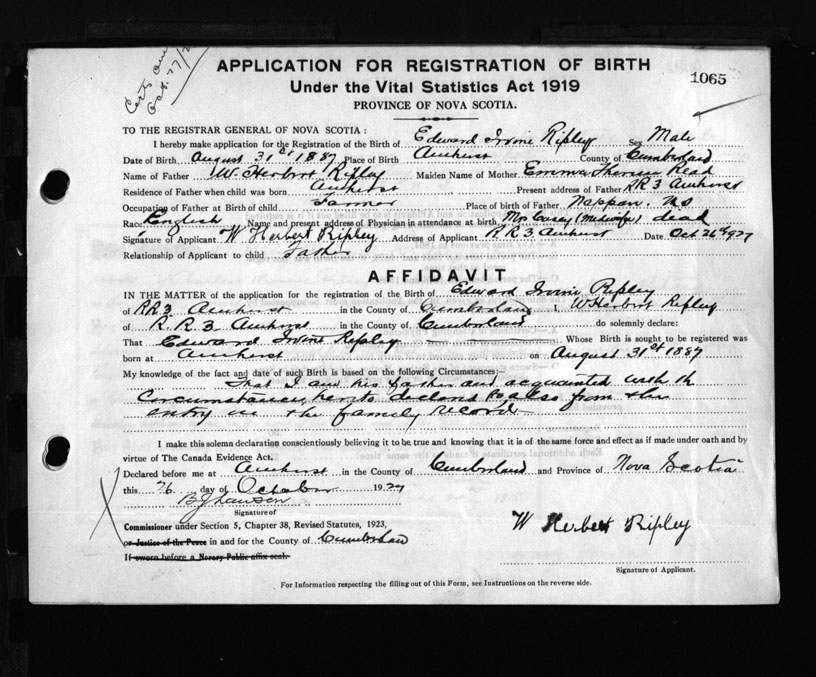 Certs
Oct. 27/2
APPLICATION FOR REGISTRATION OF BIRTH
Under the Vital Statistics Act 1919
1065
PROVINCE OF NOVA SCOTIA.
TO THE REGISTRAR GENERAL OF NOVA SCOTIA :
I hereby make application for the Registration of the Birth of Edward Irvine Ripley Sex Male
Date of Birth August 31st 1887 Place of Birth Amherst County of Cumberland
Name of Father W. Herbert Ripley Maiden Name of Mother Emma Theresa Read
Residence of Father when child was born Amherst Present address of Father RR3 Amherst
Occupation of Father at Birth of child Farmer Place of birth of Father Nappan. NS
Race English Name and present address of Physician in attendance at birth, Mrs Casey (midwife) dead
Signature of Applicant W Herbert Ripley Address of Applicant RR3 Amherst Date Oct 26th 1927
Relationship of Applicant to child Father
AFFIDAVIT
IN THE MATTER of the application for the registration of the Birth of Edward Irvine Ripley
of RR3 Amherst in the County of Cumberland I, W. Herbert Ripley
of R. R. 3 Amherst in the County of Cumberland do solemnly declare:
That Edward Irvine Ripley Whose Birth is sought to be registered was
born at Amherst on August 31st 1887
My knowledge of the fact and date of such Birth is based on the following Circumstances;—
That I am his father and acquainted with the
Circumstances, hereto declared to also from the
entry in the family Record
I make this solemn declaration conscientiously believing it to be true and knowing that it is of the same force and effect as if made under oath and by
virtue of The Canada Evidence Act.
Declared before me at Amherst in the County of Cumberland and Province of Nova Scotia
this 26 day of October 1927
Signature of
Commissioner under Section 5, Chapter 38, Revised Statutes, 1923,
or Justice of the Peace in and for the County of Cumberland
If sworn before a Notary Public affix seal.
W Herbert Ripley
Signature of Applicant.
For Information respecting the filling out of this Form, see Instructions on the reverse side.